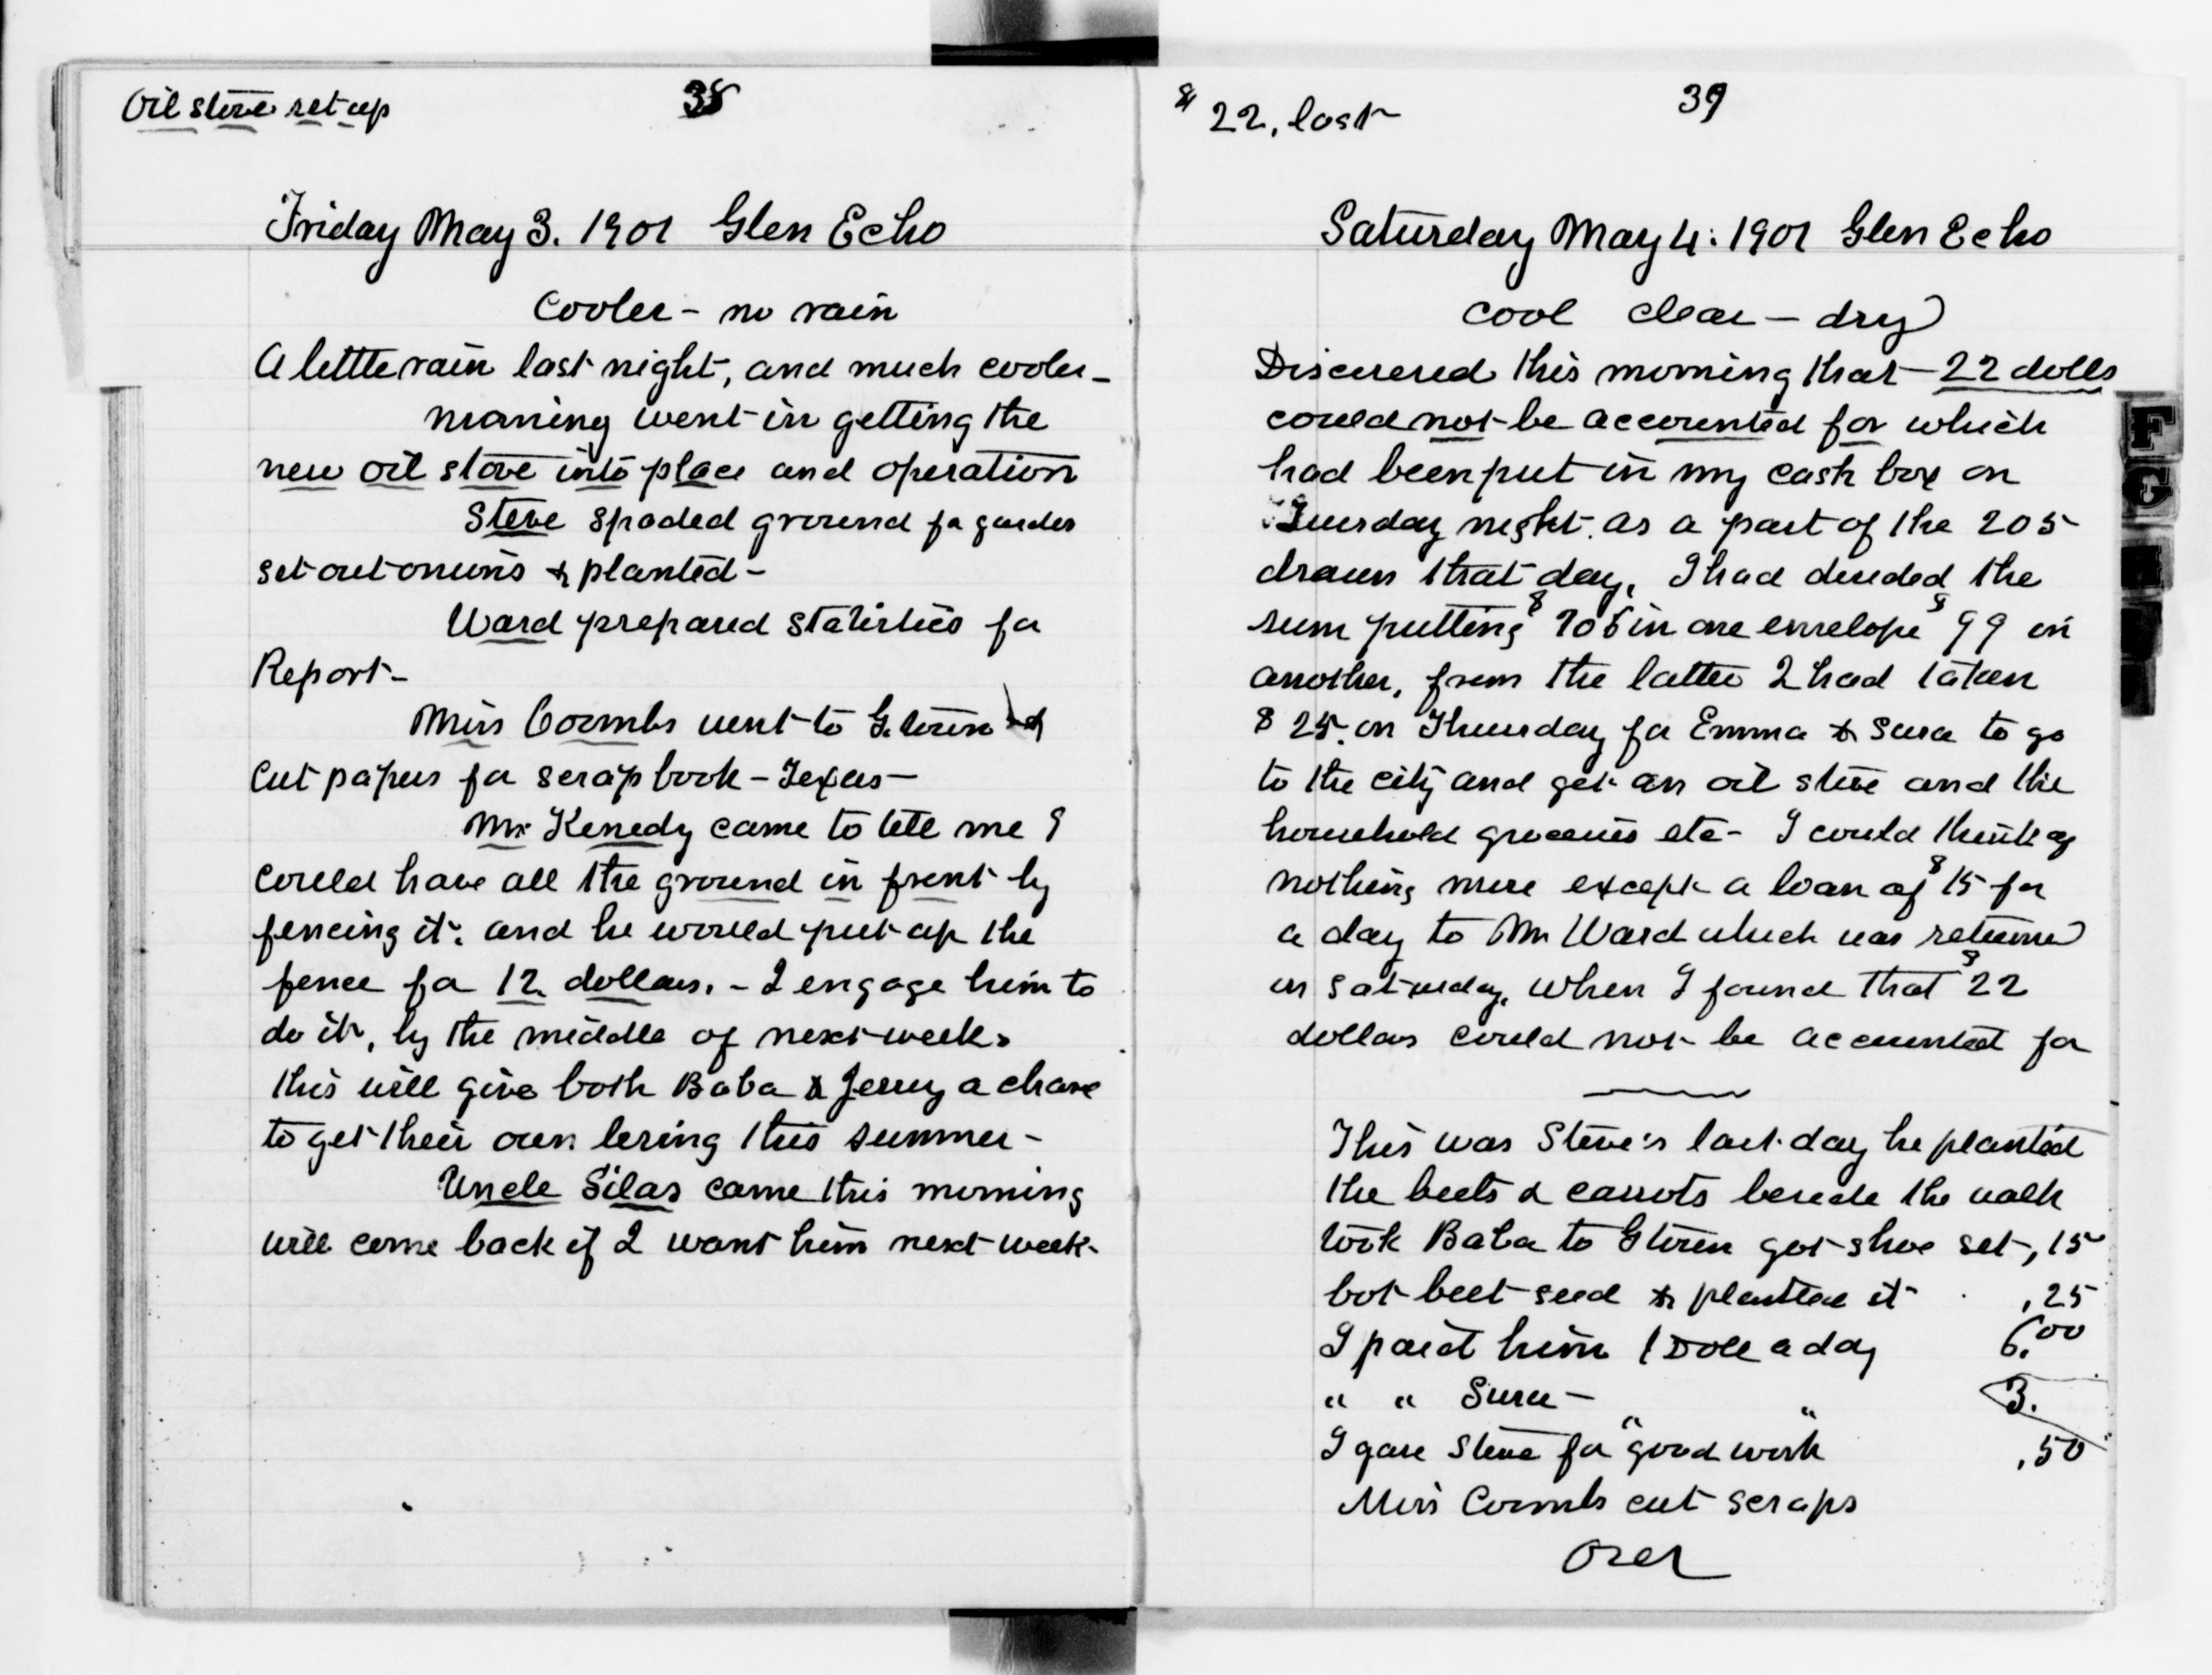 Oil stove set up
38
Friday May 3. 1901 Glen Echo
Cooler - no rain
A little rain last night, and much cooler -
morning went in getting the
new oil stove into place and operation
Steve spaded ground for garden
set out onions & planted -
Ward prepared statistics for
Report -
Miss Coombs went to G. town &
cut papers for scrap book - Texas -
Mr Kenedy came to tell me I
could have all the ground in front by
fencing it. and he would put up the
fence for 12. dollars. - I engage him to
do it, by the middle of next week.
this will give both Baba & Jenny a chance
to get their own living this summer -
Uncle Silas came this morning
will come back if I want him next week.
$22. lost
39
Saturday May 4. 1901 Glen Echo
cool clear - dry
Discovered this morning that 22 dolls
could not be accounted for which
had been put in my cash box on
Tuesday night. as a part of the 205
drawn that day, I had divided the
sum putting $106 in one envelope $99 in
another, from the latter I had taken
$25. on Thursday for Emma & Sara to go
to the city and get an oil stove and the
household groceries etc - I could think of
nothing more except a loan of $15 for
a day to Mr Ward which was returned
on Saturday, when I found that $22
dollars could not be accounted for
This was Steve's last day he planted
the beets & carrots beside the walk
took Baba to G town got shoe set, 15
bot beet seed & planted it .25
I paid him 1 Doll a day 6.00
" " Sura - " " 3.
I gave Steve for good work .50
Miss Coombs cut scraps
Over
F
G